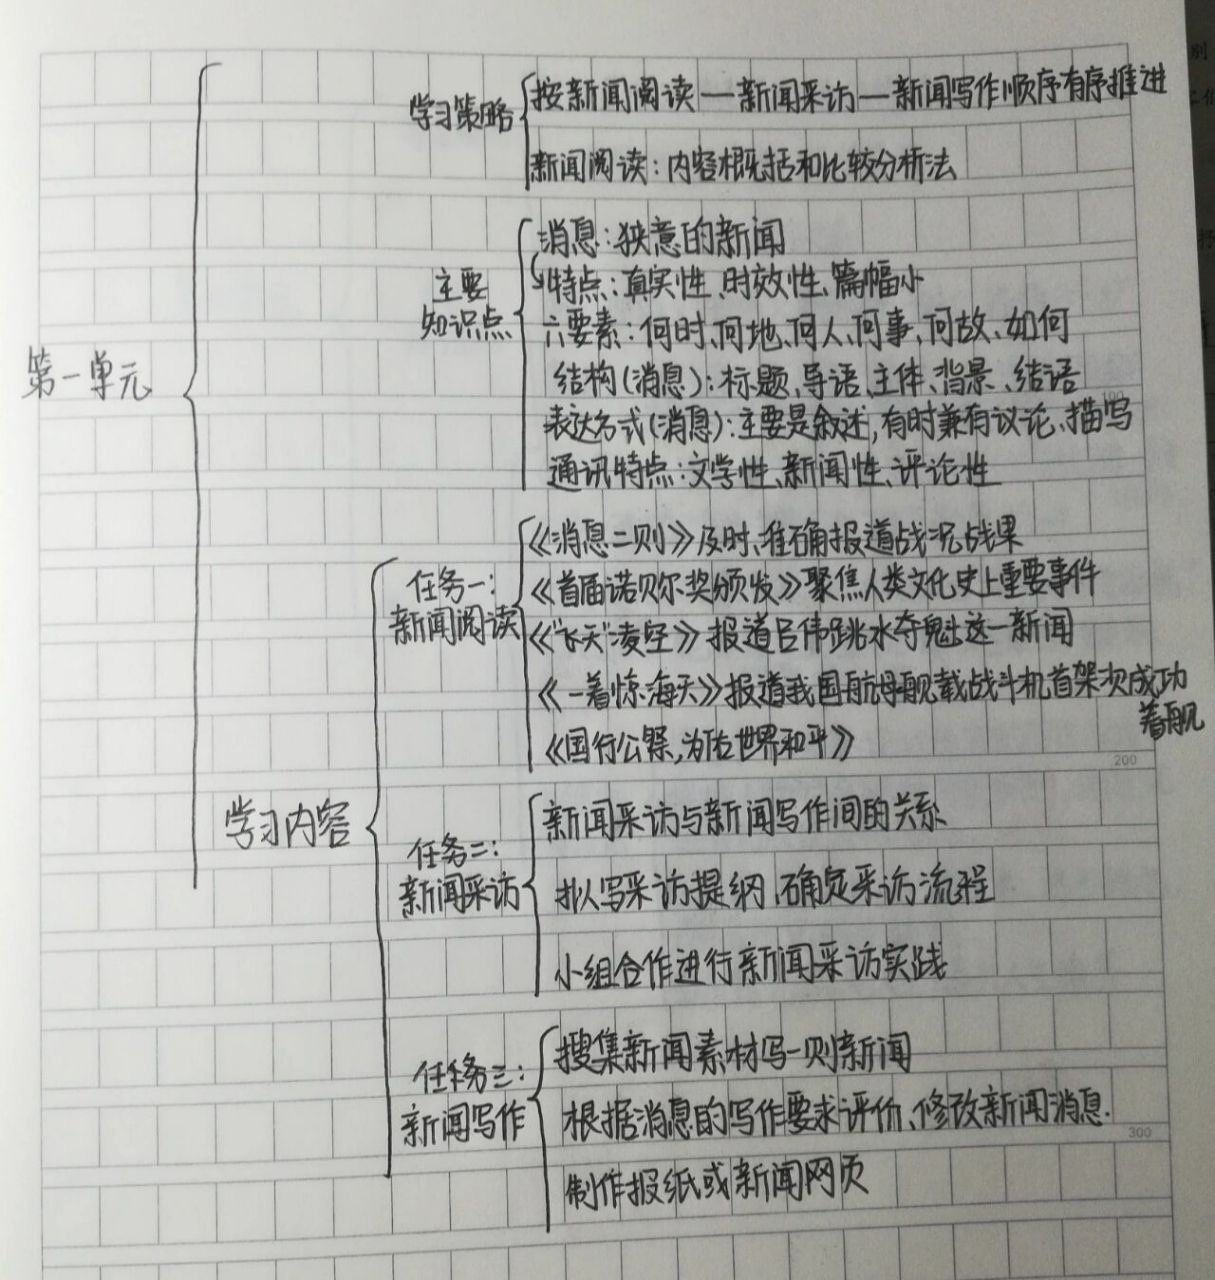 第一单元
学习策略
按新闻阅读—新闻采访—新闻写作顺序有序推进
新闻阅读：内容概括和比较分析法
主要
知识点
消息：狭意的新闻
特点：真实性、时效性、篇幅小
六要素：何时、何地、何人、何事、何故、如何
结构(消息)：标题、导语、主体、背景、结语
100
表达方式(消息)：主要是叙述，有时兼有议论、描写
通讯特点：文学性、新闻性、评论性
学习内容
任务一：
新闻阅读
《消息二则》及时、准确报道战况战果
《首届诺贝尔奖颁发》聚焦人类文化史上重要事件
《“飞天”凌空》报道吕伟跳水夺魁这一新闻
《一着惊海天》报道我国航母舰载战斗机首架次成功
着舰
《国行公祭，为佑世界和平》
200
任务二：
新闻采访
新闻采访与新闻写作间的关系
拟写采访提纲、确定采访流程
小组合作进行新闻采访实践
任务三：
新闻写作
搜集新闻素材写一则新闻
根据消息的写作要求评价、修改新闻消息.
300
制作报纸或新闻网页